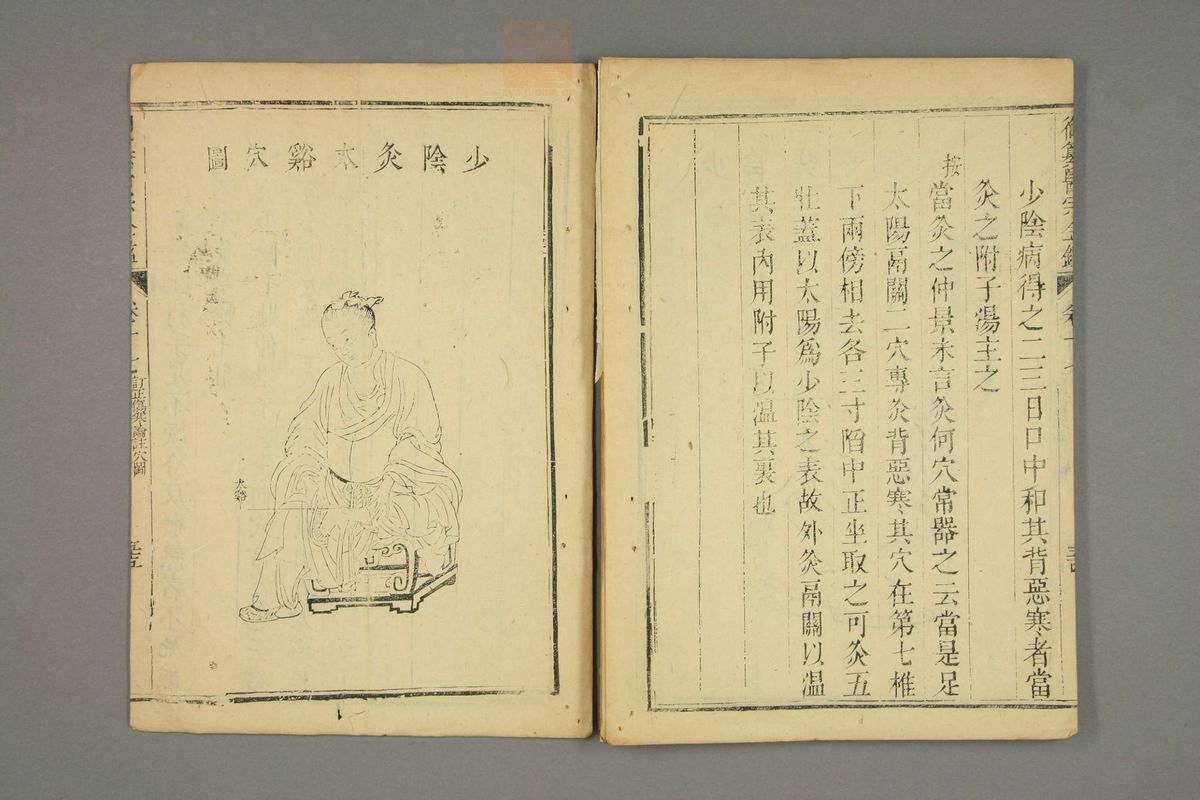 御纂醫宗金鑑 卷十七
少陰病得之一二日口中和其背惡寒者當
灸之附子湯主之
按
當灸之仲景未言灸何穴常器之云當是足
太陽鬲關二穴專灸背惡寒其穴在第七椎
下兩傍相去各三寸陷中正坐取之可灸五
壯蓋以太陽爲少陰之表故外灸鬲關以溫
其表內用附子以溫其裏也
少陰灸太谿穴圖
太谿
卷十七 訂正傷寒論註穴圖